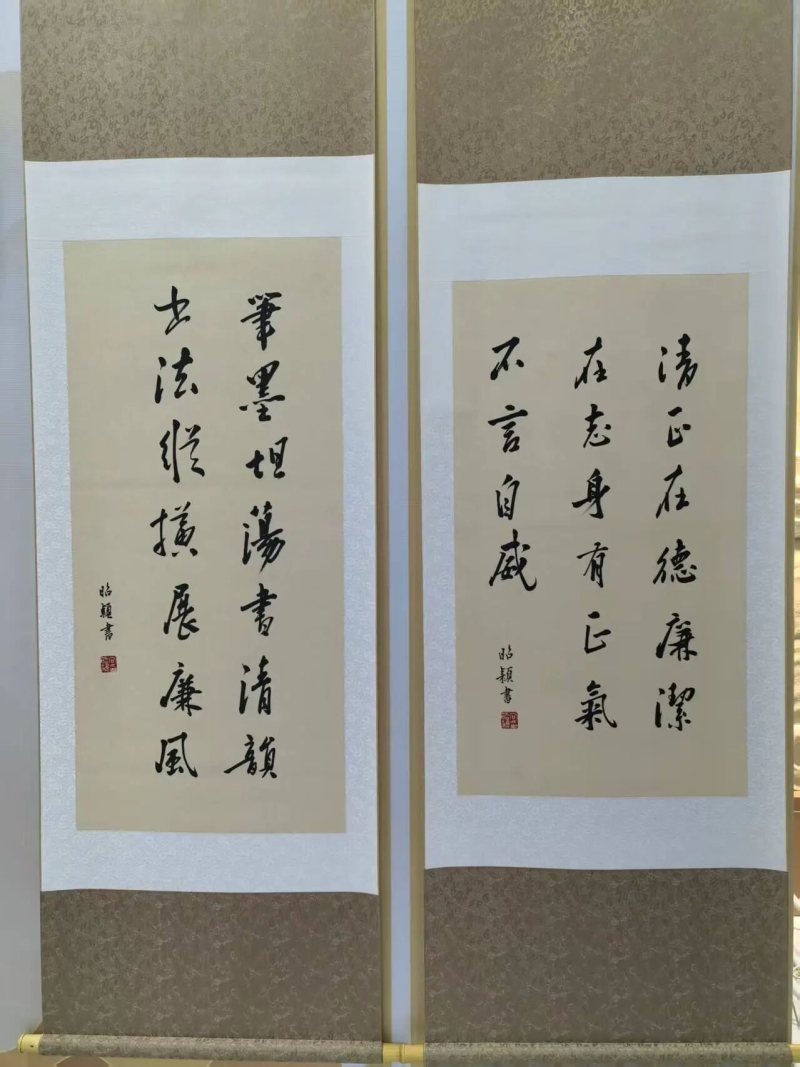 清正在德廉潔
在志身有正氣
不言自威
昭穎書
筆墨坦蕩書清韻
书法縱橫展廉風
昭穎書